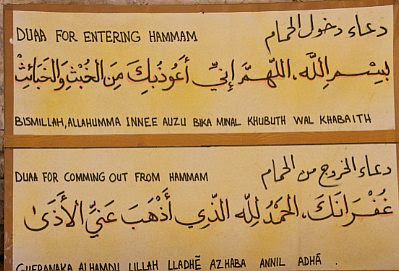 DUAA FOR ENTERING HAMMAM دعاء دخول الحمام
بِسْمِ اللَّه، اللَّهُمَّ إِنِّي أَعُوذُبِكَ مِنَ الْخُبْثِ وَالْخَبَائِثِ
BISMILLAH, ALLAHUMMA INNEE AUZU BIKA MINAL KHUBUTH WAL KHABAITH
DUAA FOR COMMING OUT FROM HAMMAM دعاء الخروج من الحمام
غُفْرَانَكَ، الحَمْدُ لِلَّهِ الَّذِي أَذْهَبَ عَنِّي الأَذَى
GUFRANAKA ALHAMDU LILLAH LLADHĒ AZHABA ANNIL ADHÁ